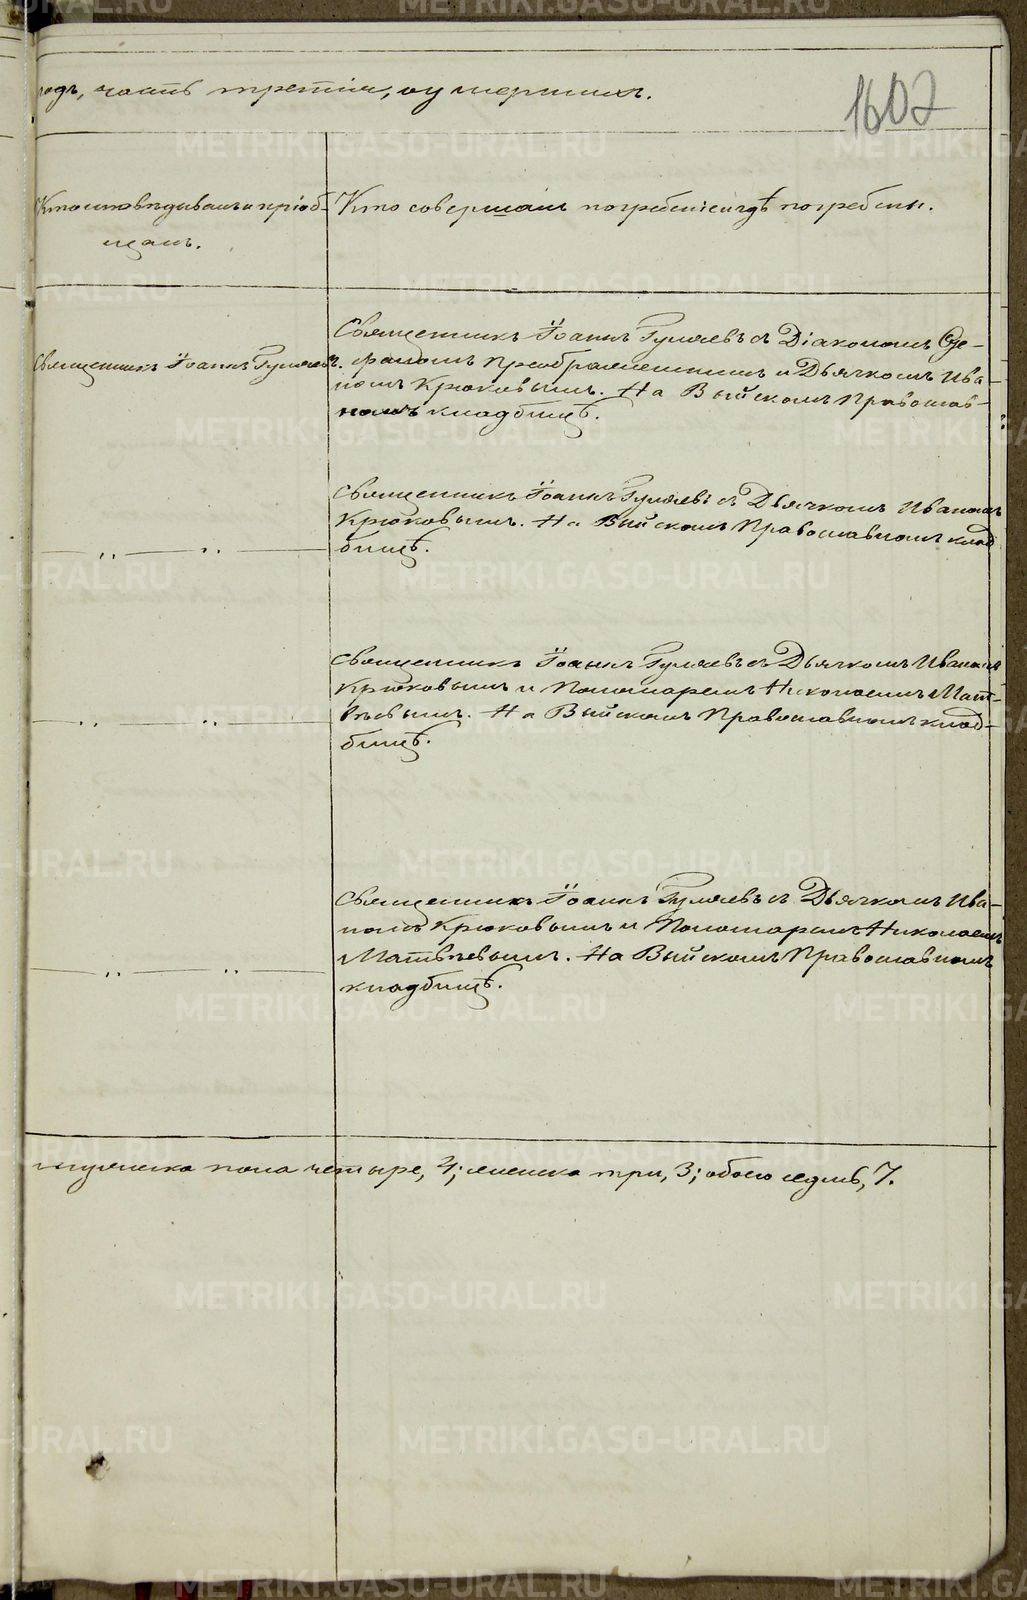 годъ, часть третія, о умершихъ.
1602
Кто исповѣдывалъ и пріоб-
щалъ.
Кто совершалъ погребеніе и гдѣ погребены.
Священникъ Іоаннъ Гуляевъ.
Священникъ Іоаннъ Гуляевъ съ Діакономъ Сте-
фаномъ Преображенскимъ и Дьячкомъ Ива-
номъ Крюковымъ. На Выйскомъ Православ-
номъ кладбищѣ.
Священникъ Іоаннъ Гуляевъ съ Дьячкомъ Иваномъ
Крюковымъ. На Выйскомъ Православномъ клад
бищѣ.
— „ „ —
Священникъ Іоаннъ Гуляевъ съ Дьячкомъ Иваномъ
Крюковымъ и Пономаремъ Николаемъ Мат-
вѣевымъ. На Выйскомъ Православномъ клад-
бищѣ.
— „ „ —
Священникъ Іоаннъ Гуляевъ съ Дьячкомъ Ива-
номъ Крюковымъ и Пономаремъ Николаемъ
Матвѣевымъ. На Выйскомъ Православномъ
кладбищѣ.
— „ „ —
мужеска пола четыре, 4; женска три, 3; обоего седмь, 7.
METRIKI.GASO-URAL.RU